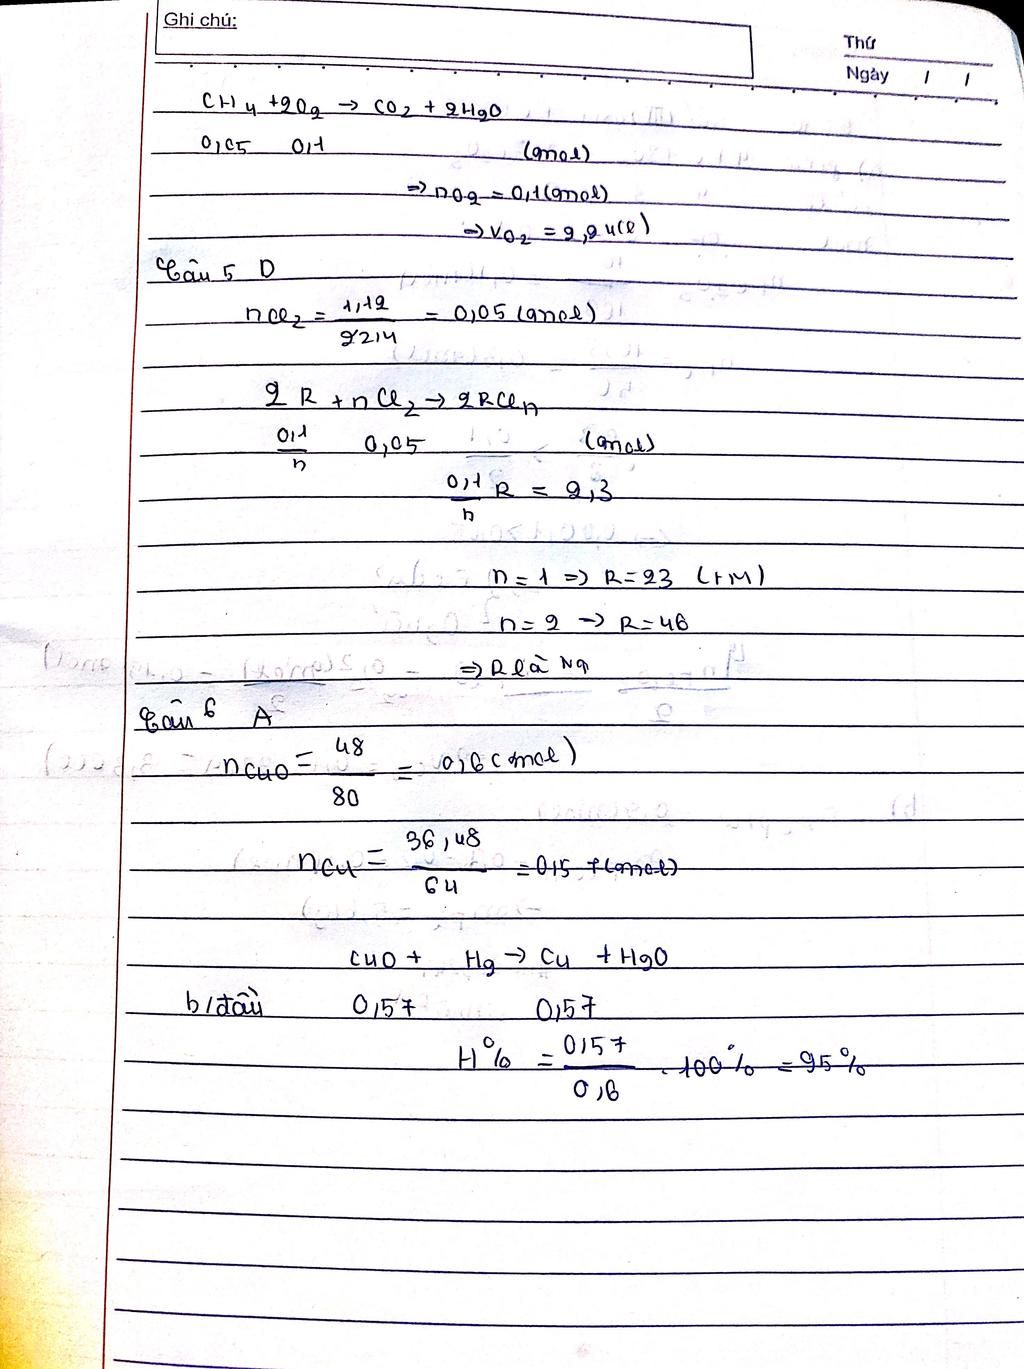 Ghi chú:
Thứ
Ngày / /
CH4 + 2O2 → CO2 + 2H2O
0,05 0,1 (mol)
⇒ nO2 = 0,1 (mol)
⇒ VO2 = 2,24 (l)
Câu 5 D
nCl2 = 1,12/22,4 = 0,05 (mol)
2R + nCl2 → 2RCln
0,1/n 0,05 (mol)
0,1/n R = 2,3
n = 1 ⇒ R = 23 (TM)
n = 2 → R = 46
⇒ R là Na
Câu 6 A
nCuO = 48/80 = 0,6 (mol)
nCu = 36,48/64 = 0,57 (mol)
CuO + H2 → Cu + H2O
b/đầu 0,57 0,57
H% = 0,57/0,6 . 100% = 95%